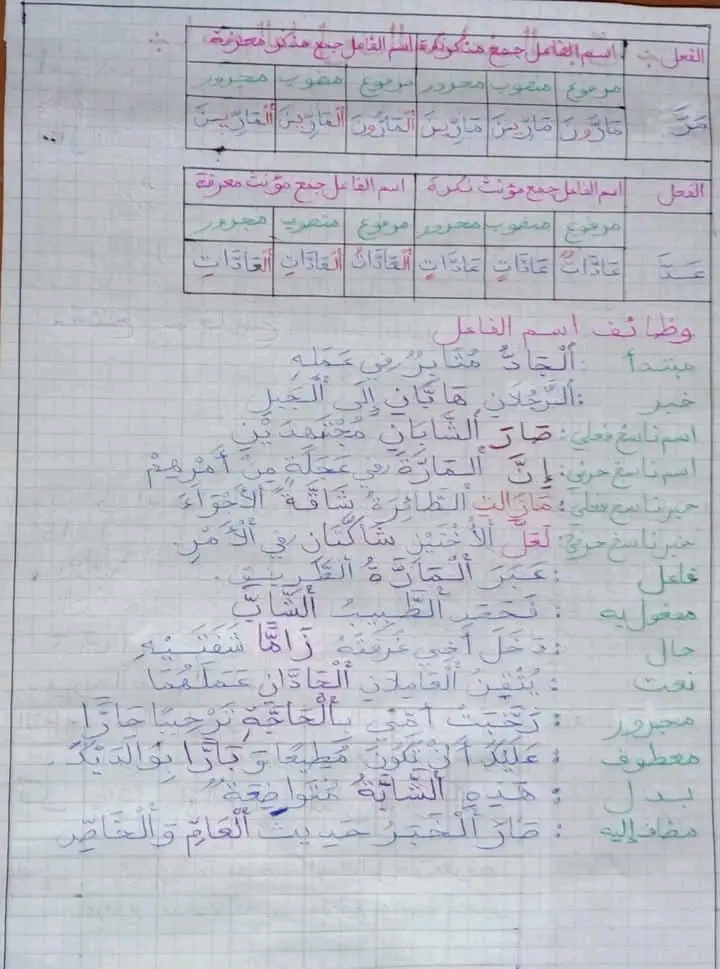 الفعل اسم الفاعل جمع مذكر نكرة اسم الفاعل جمع مذكر معرفة
مرفوع منصوب مجرور مرفوع منصوب مجرور
مَرَّ مَارُّونَ مَارِّينَ مَارِّينَ اَلْمَارُّونَ اَلْمَارِّينَ اَلْمَارِّينَ
الفعل اسم الفاعل جمع مؤنث نكرة اسم الفاعل جمع مؤنث معرفة
مرفوع منصوب مجرور مرفوع منصوب مجرور
عَدَّ عَادَّاتٌ عَادَّاتٍ عَادَّاتٍ اَلْعَادَّاتُ اَلْعَادَّاتِ اَلْعَادَّاتِ
وظائف اسم الفاعل
مبتدأ : اَلْجَادُّ مُثَابِرٌ فِي عَمَلِهِ
خبر : اَلرَّجُلَانِ هَامَّانِ إِلَى اَلْجَبَلِ
اسم ناسخ فعلي : صَارَ اَلشَّابَانِ مُجْتَهِدَيْنِ
اسم ناسخ حرفي : إِنَّ اَلْمَارَّةَ فِي عَجَلَةٍ مِنْ أَمْرِهِمْ
خبر ناسخ فعلي : مَازَالَتِ اَلطَّائِرَةُ شَاقَّةً اَلْأَجْوَاءَ
خبر ناسخ حرفي : لَعَلَّ اَلْأُخْتَيْنِ شَاكَّتَانِ فِي اَلْأَمْرِ.
فاعل : عَبَرَ اَلْمَارَّةُ اَلطَّرِيقَ.
مفعول به : نَصَحَ اَلطَّبِيبُ اَلشَّابَّ
حال : دَخَلَ أَخِي غُرْفَتَهُ زَامًّا شَفَتَيْهِ
نعت : يُتْقِنُ اَلْعَامِلَانِ اَلْجَادَّانِ عَمَلَهُمَا
مجرور : رَحَّبَتْ أُمِّي بِالْحَاجَّةِ تَرْحِيبًا حَارًّا.
معطوف : عَلَيْكَ أَنْ تَكُونَ مُطِيعًا وَ بَارًّا بِوَالِدَيْكَ.
بدل : هَذِهِ اَلشَّابَّةُ مُتَوَاضِعَةٌ
مضاف إليه : صَارَ اَلْخَبَرُ حَدِيثَ اَلْعَامِّ وَاَلْخَاصِّ